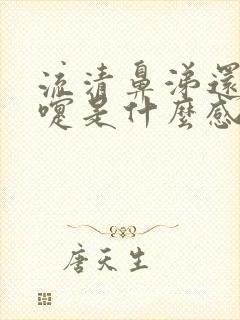 流清鼻涕還
嚏是什麼感
唐天生